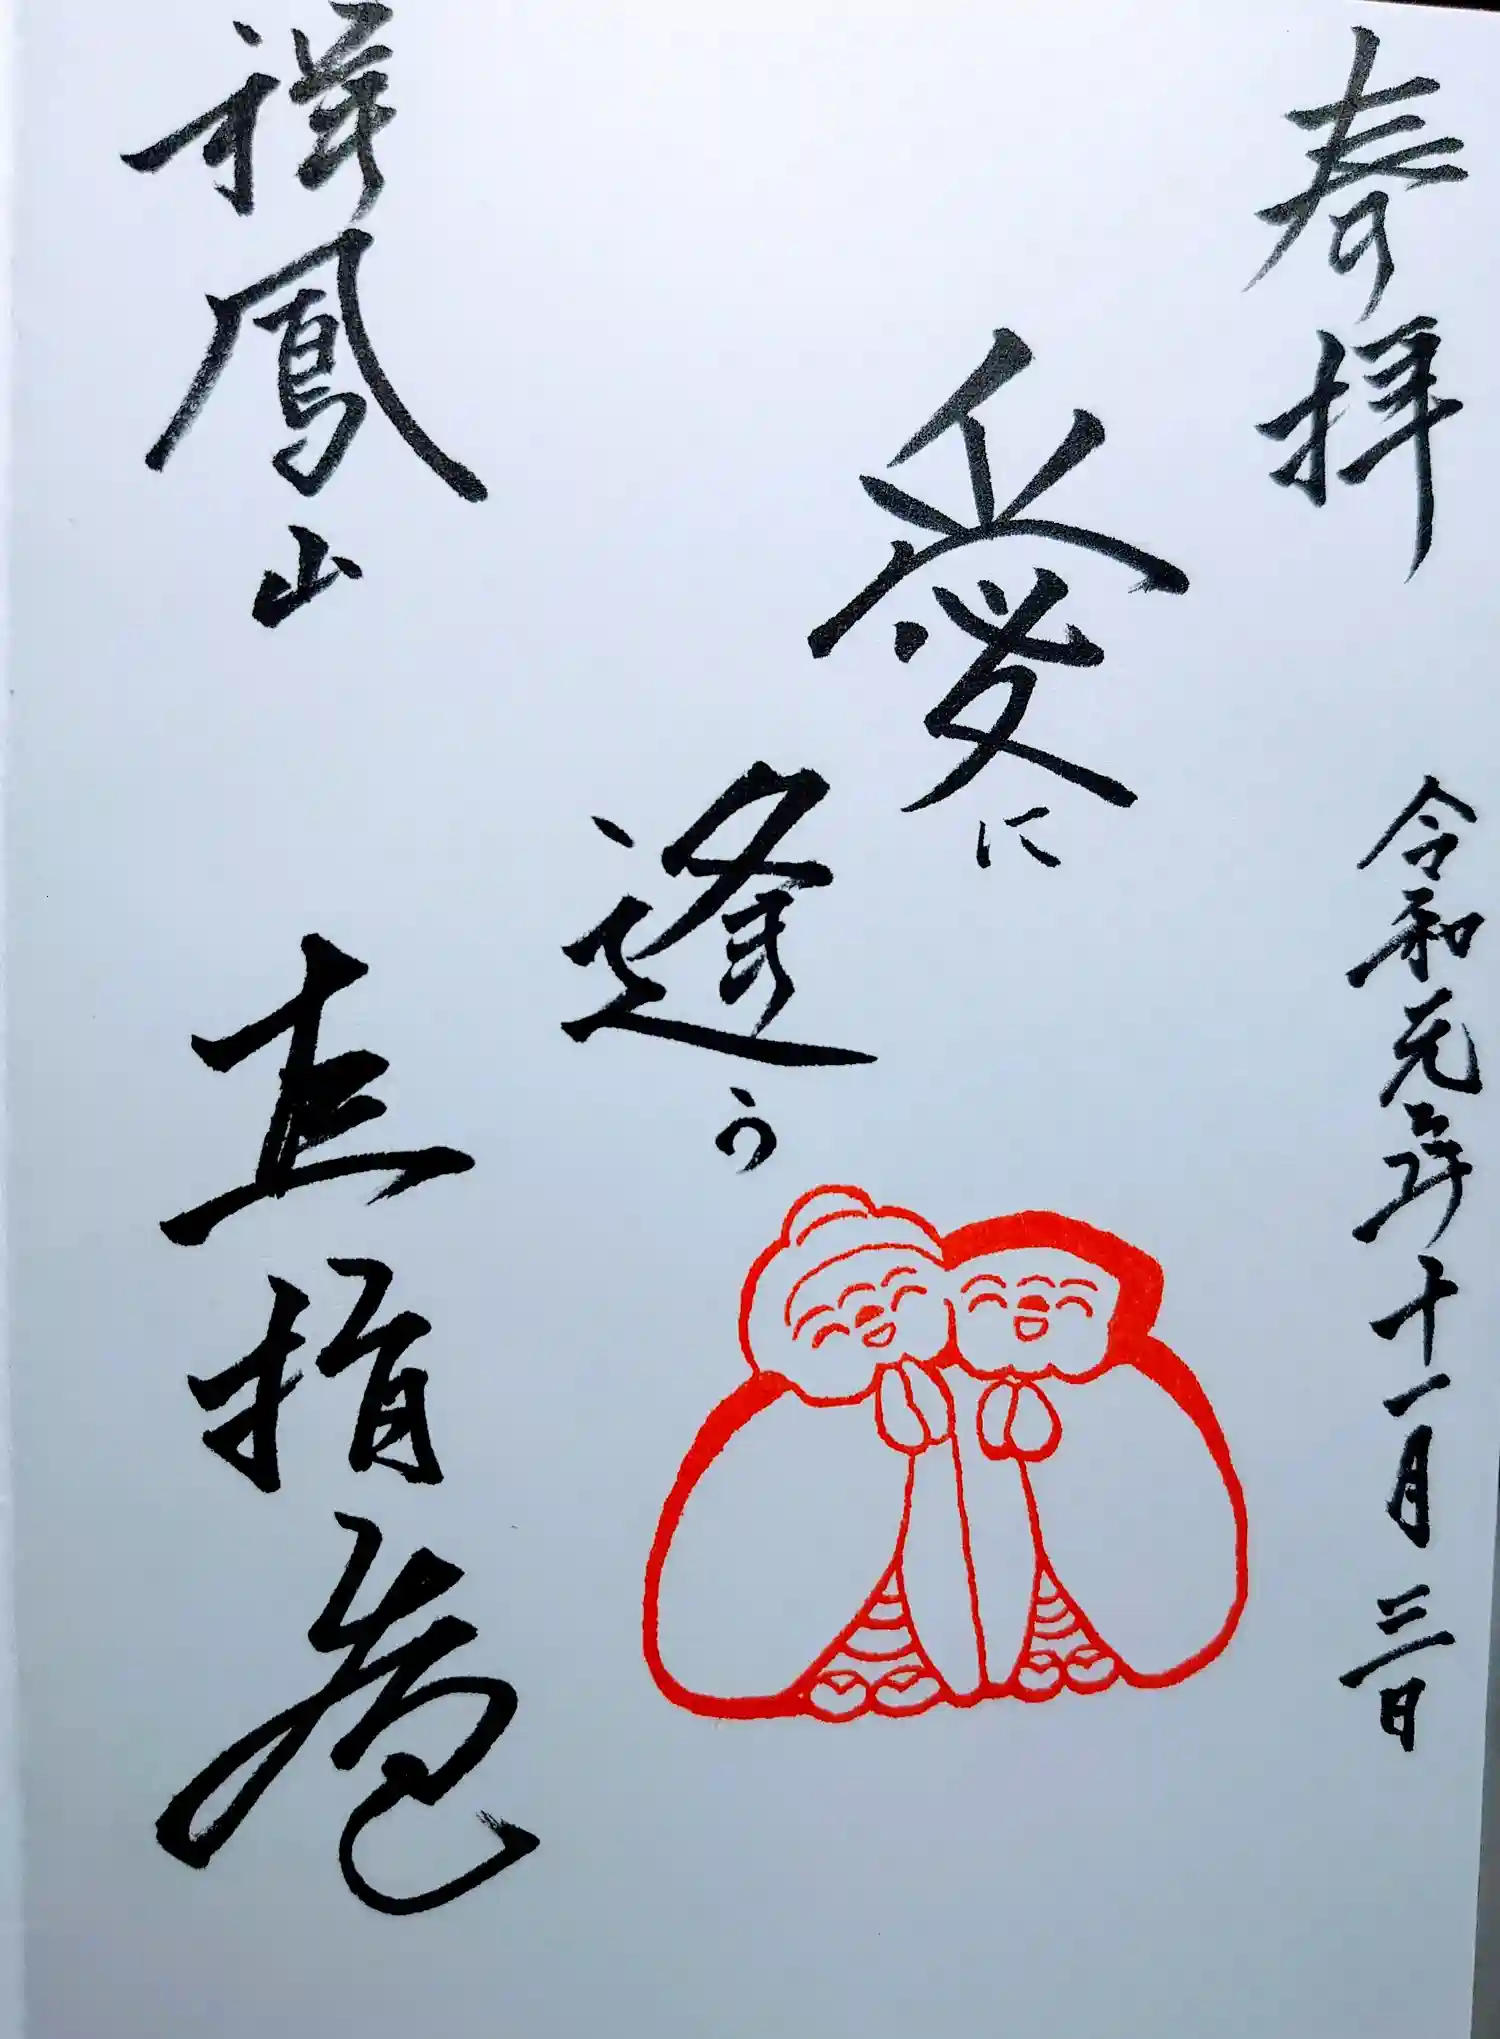 奉拝
令和元年十一月三日
愛に
逢う
祥鳳山
直指庵